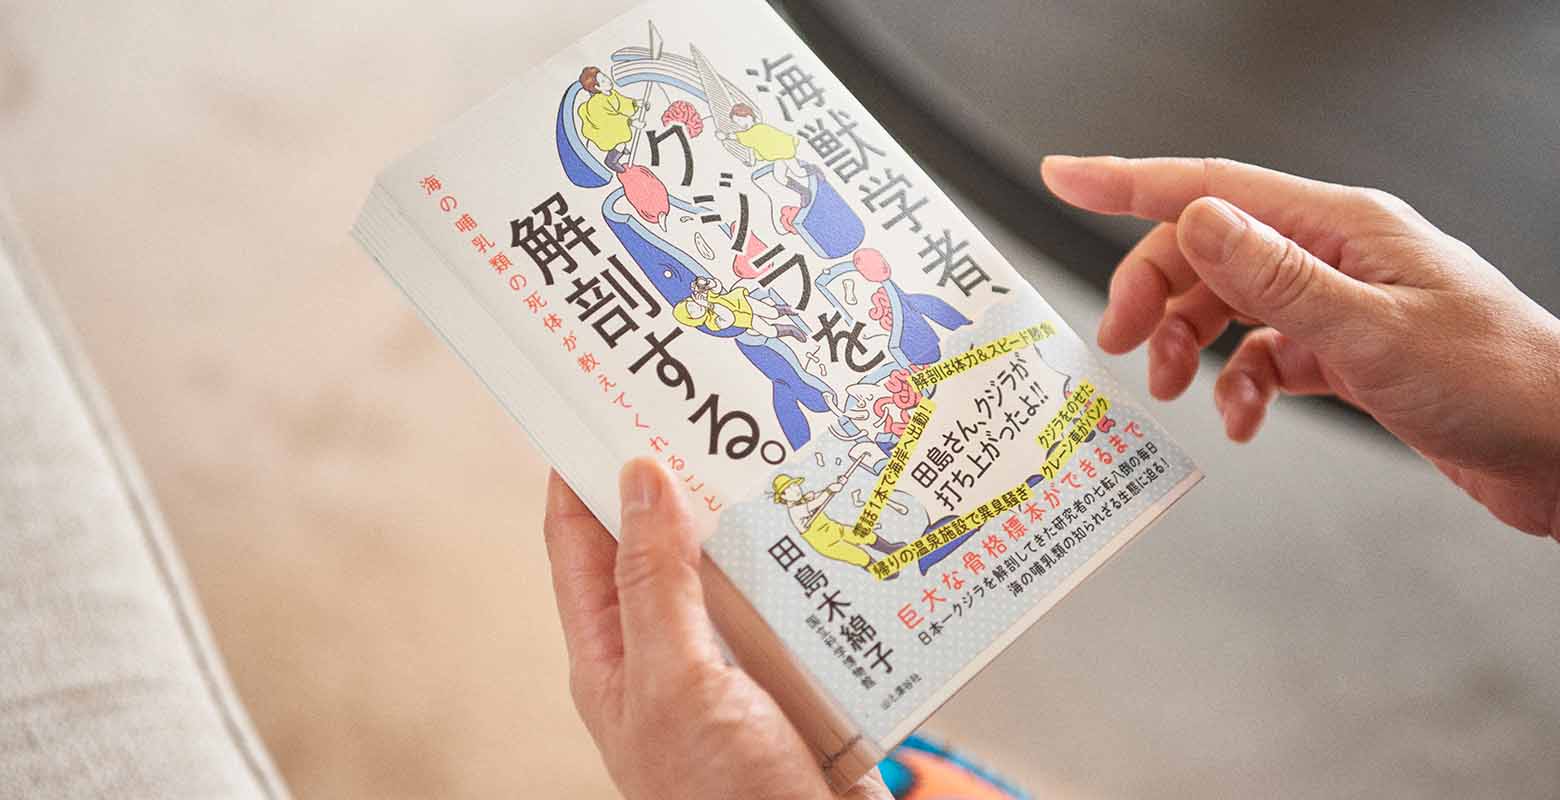 海獣学者、
クジラを
解剖する。
海の哺乳類の死体が教えてくれること
解剖は体力&スピード勝負
電話1本で海岸へ出動!
田島さん、クジラが
打ち上がったよ!!
クジラをのせた
クレーン車がパンク
帰りの温泉施設で異臭騒ぎ
巨大な骨格標本ができるまで
日本一クジラを解剖してきた研究者の七転八倒の毎日
海の哺乳類の知られざる生態に迫る!
田島木綿子
国立科学博物館
山と溪谷社